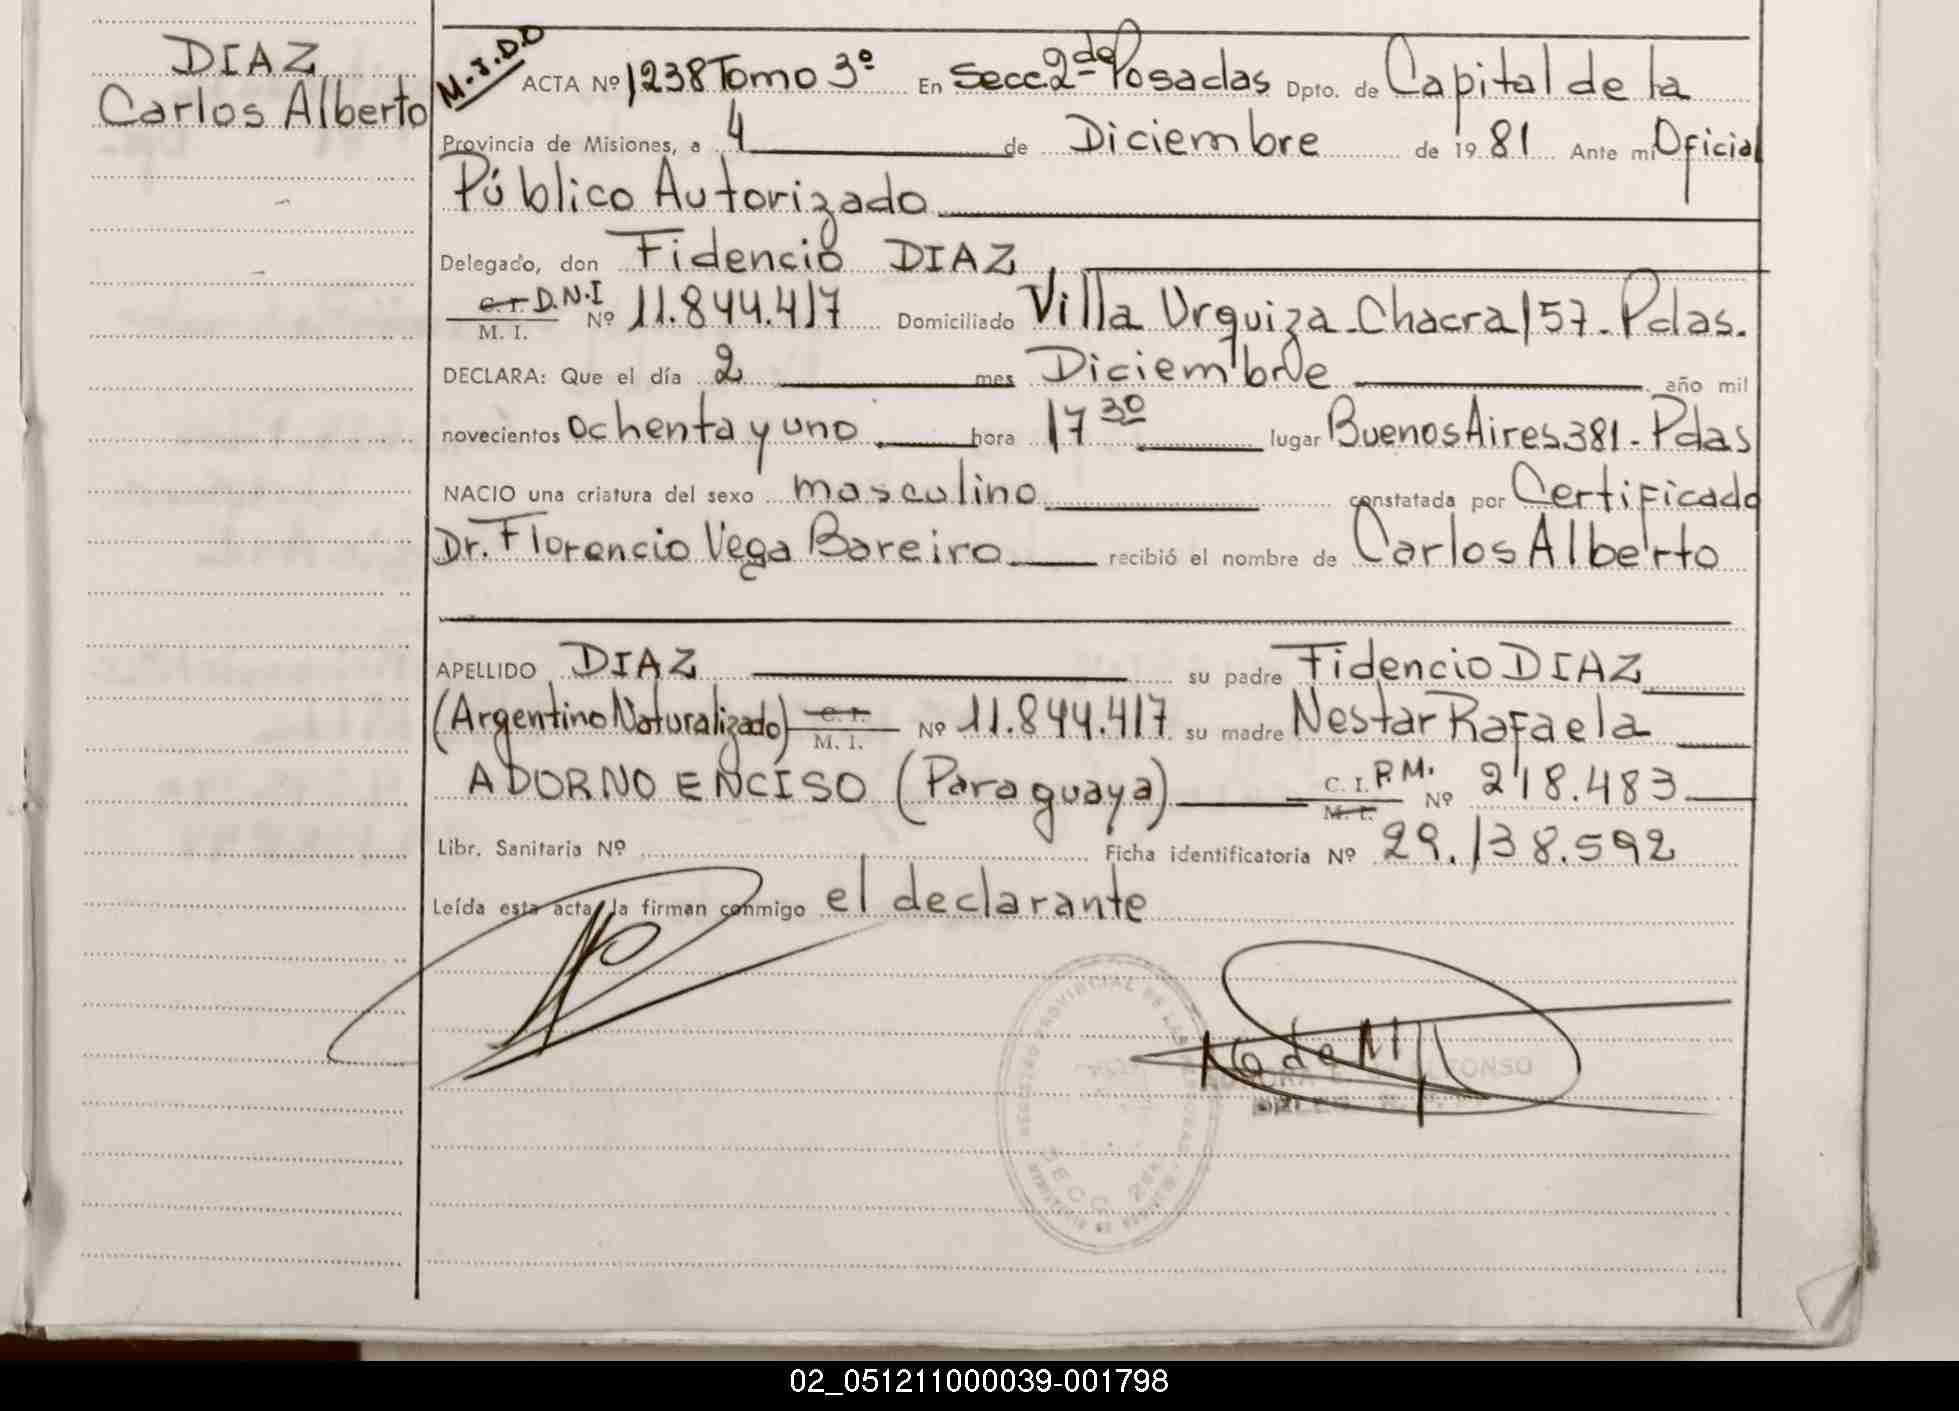 DIAZ
Carlos Alberto
M.I.D.D
ACTA Nº 1238 Tomo 3º En Secc. 2da Posadas Dpto. de Capital de la
Provincia de Misiones, a 4 de Diciembre de 1981 Ante mi Oficial
Público Autorizado
Delegado, don Fidencio DIAZ
C.I. D.N.I
M. I. Nº 11.844.417 Domiciliado Villa Urquiza - Chacra 157 - Pdas.
DECLARA: Que el día 2 mes Diciembre año mil
novecientos ochenta y uno hora 17 30 lugar Buenos Aires 381 - Pdas
NACIO una criatura del sexo masculino constatada por Certificado
Dr. Florencio Vega Bareiro recibió el nombre de Carlos Alberto
APELLIDO DIAZ su padre Fidencio DIAZ
(Argentino Naturalizado) C. I. M. I. Nº 11.844.417 su madre Nestar Rafaela
ADORNO ENCISO (Paraguaya) C. I. P.M. M. I. Nº 218.483
Libr. Sanitaria Nº Ficha identificatoria Nº 29.138.592
Leída esta acta, la firman conmigo el declarante
REGISTRO PROVINCIAL DE LAS PERSONAS
SECC. 2da
02_051211000039-001798